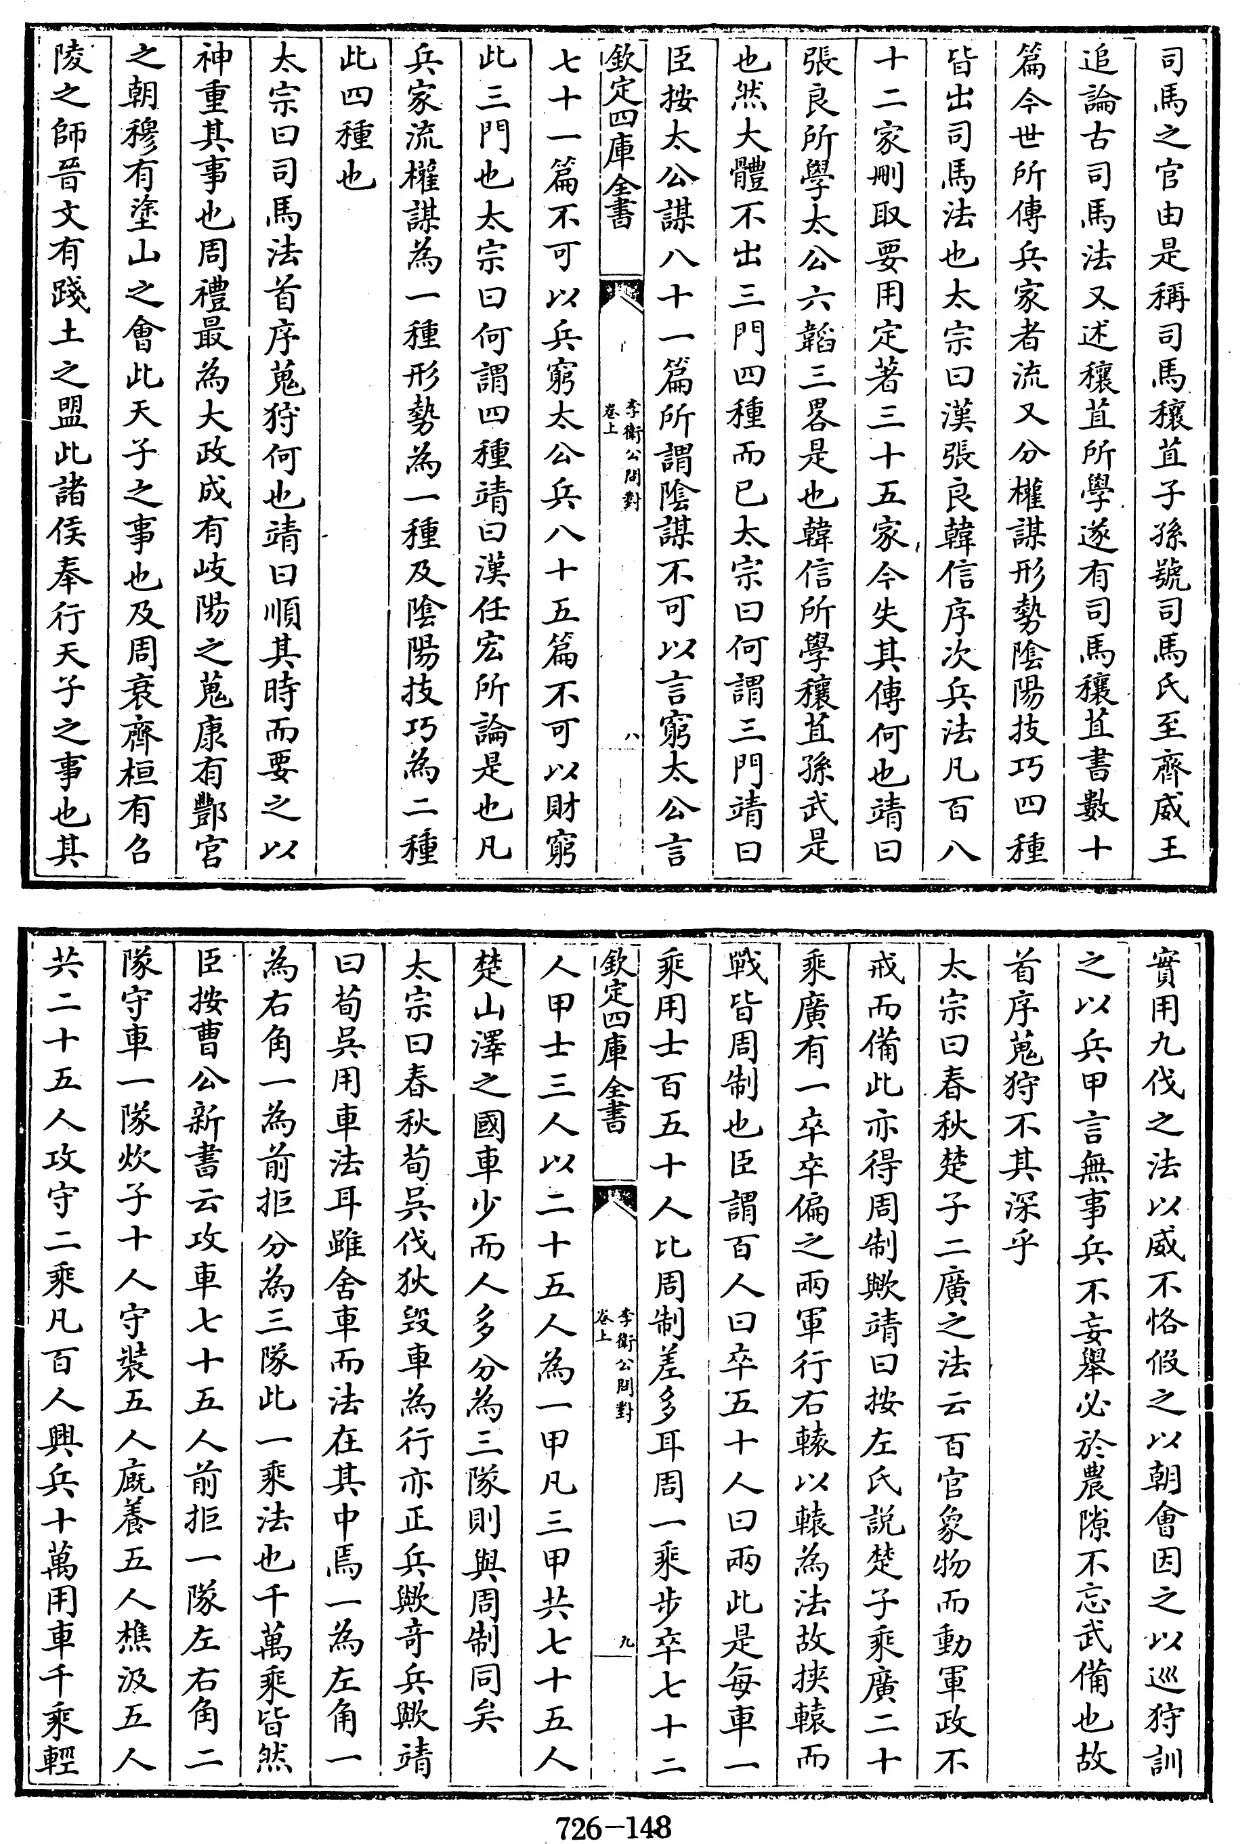 司馬之官由是稱司馬穰苴子孫號司馬氏至齊威王
追論古司馬法又述穰苴所學遂有司馬穰苴書數十
篇今世所傳兵家者流又分權謀形勢陰陽技巧四種
皆出司馬法也太宗曰漢張良韓信序次兵法凡百八
十二家刪取要用定著三十五家今失其傳何也靖曰
張良所學太公六韜三畧是也韓信所學穰苴孫武是
也然大體不出三門四種而已太宗曰何謂三門靖曰
臣按太公謀八十一篇所謂陰謀不可以言窮太公言
欽定四庫全書
李衛公問對
卷上
八
七十一篇不可以兵窮太公兵八十五篇不可以財窮
此三門也太宗曰何謂四種靖曰漢任宏所論是也凡
兵家流權謀為一種形勢為一種及陰陽技巧為二種
此四種也
太宗曰司馬法首序蒐狩何也靖曰順其時而要之以
神重其事也周禮最為大政成有岐陽之蒐康有酆宮
之朝穆有塗山之會此天子之事也及周衰齊桓有召
陵之師晉文有踐土之盟此諸侯奉行天子之事也其
實用九伐之法以威不恪假之以朝會因之以巡狩訓
之以兵甲言無事兵不妄舉必於農隙不忘武備也故
首序蒐狩不其深乎
太宗曰春秋楚子二廣之法云百官象物而動軍政不
戒而備此亦得周制歟靖曰按左氏説楚子乘廣二十
乘廣有一卒卒偏之兩軍行右轅以轅為法故挾轅而
戰皆周制也臣謂百人曰卒五十人曰兩此是每車一
乘用士百五十人比周制差多耳周一乘步卒七十二
欽定四庫全書
李衛公問對
卷上
九
人甲士三人以二十五人為一甲凡三甲共七十五人
楚山澤之國車少而人多分為三隊則與周制同矣
太宗曰春秋荀吳伐狄毀車為行亦正兵歟奇兵歟靖
曰荀吳用車法耳雖舍車而法在其中焉一為左角一
為右角一為前拒分為三隊此一乘法也千萬乘皆然
臣按曹公新書云攻車七十五人前拒一隊左右角二
隊守車一隊炊子十人守裝五人廐養五人樵汲五人
共二十五人攻守二乘凡百人興兵十萬用車千乘輕
726-148